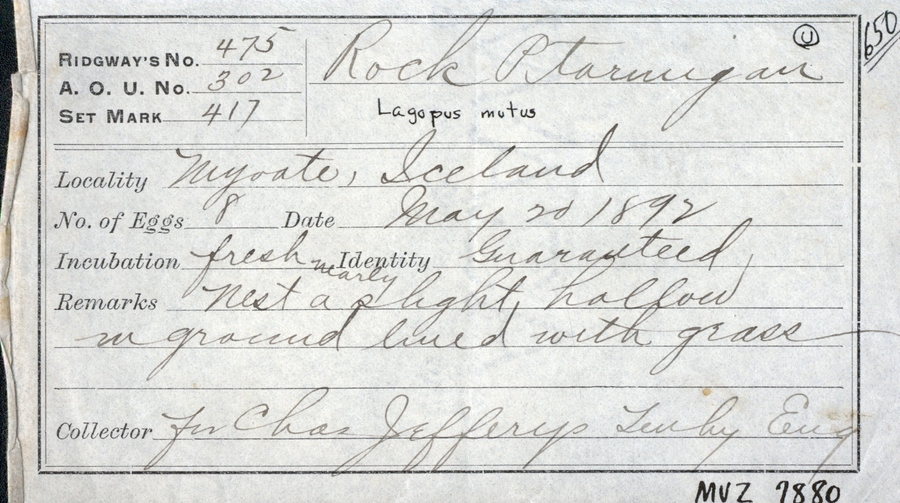 RIDGWAY'S No. 475
A. O. U. No. 302
SET MARK 417
Rock Ptarmigan
U
650
Lagopus mutus
Locality Myvatn, Iceland
No. of Eggs 8 Date May 20 1892
Incubation fresh nearly Identity Guaranteed
Remarks Nest a slight, hollow
in ground lined with grass
Collector for Chas Jefferys Tenby Eng
MVZ 9880